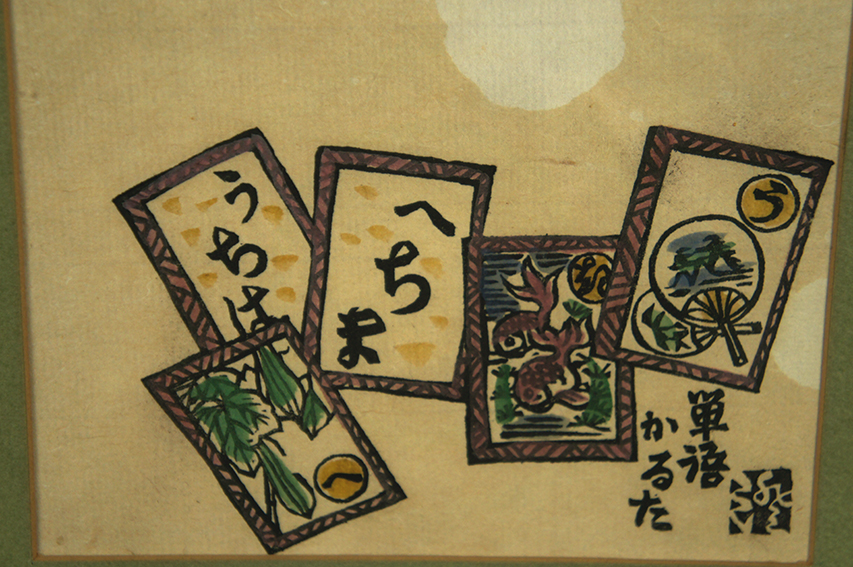 うちは
へちま
う
へ
単語
かるた